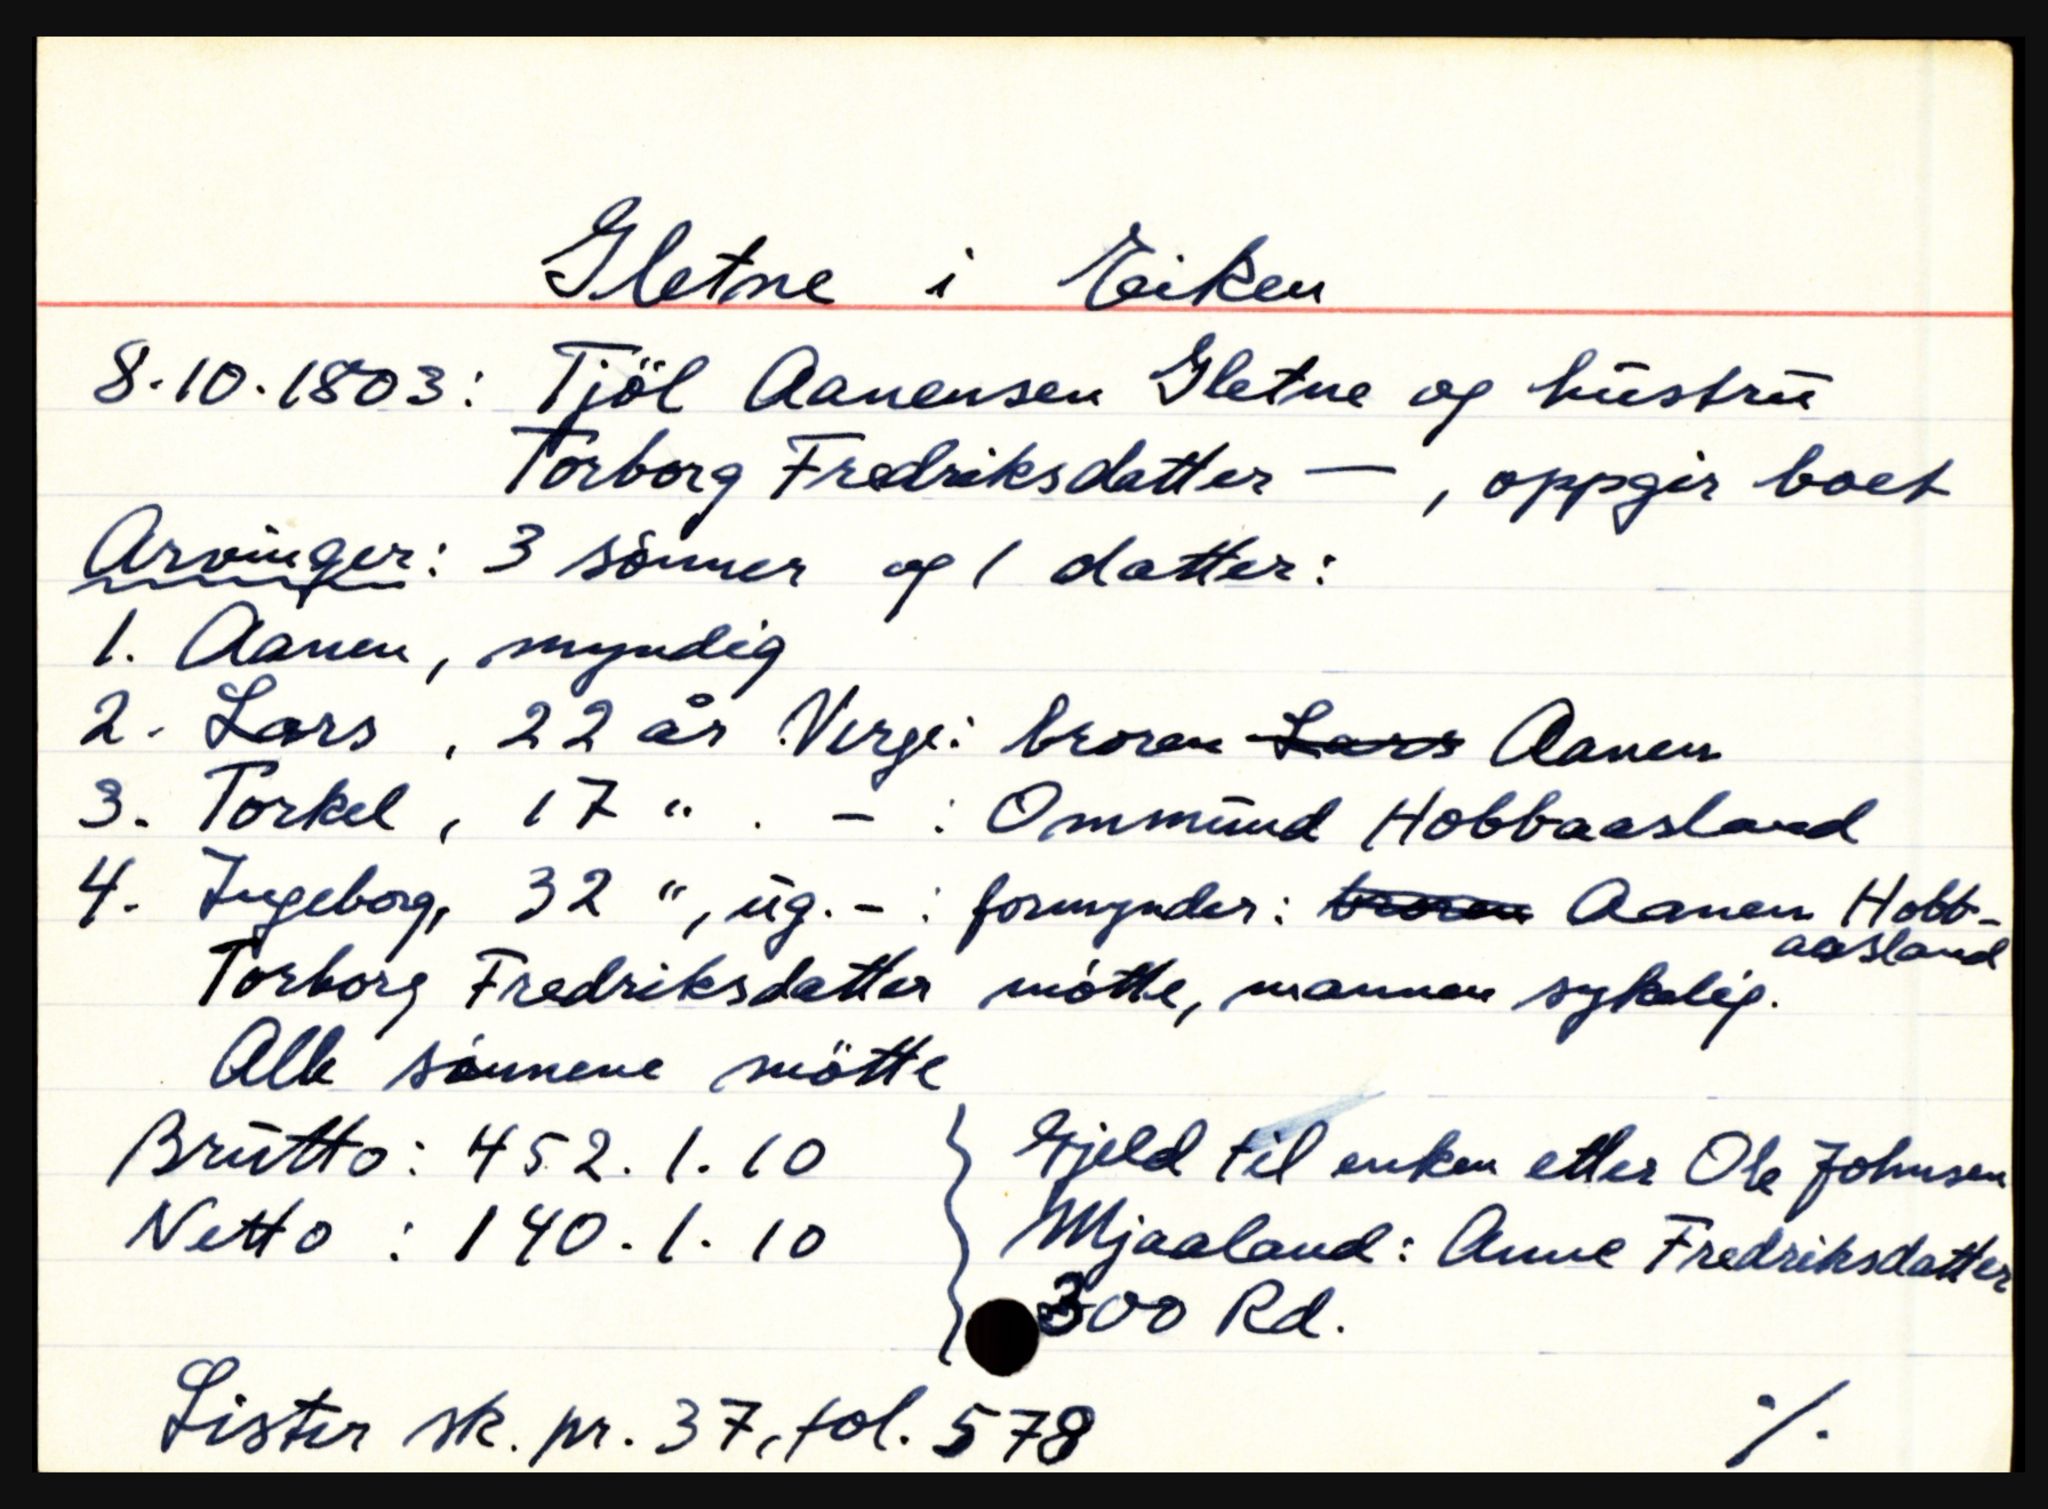 Gletne i Eiken
8.10.1803: Tjöl Aanensen Gletne og hustru
Torborg Fredriksdatter — , oppgir boet
Arvinger: 3 sönner og 1 datter:
1. Aanen, myndig
2. Lars , 22 år. Verge: broren Lars Aanen
3. Torkel , 17 " . - : Ommund Hobbaasland
4. Ingeborg, 32 ", ug. - : formynder: broren Aanen Hobb-
aasland
Torborg Fredriksdatter mötte, mannen sykelig.
Alle sönnene mötte
Brutto: 452.1.10 } Gjeld til enken etter Ole Johnsen
Netto : 140.1.10 Mjaaland: Anne Fredriksdatter
300 Rd.
Lister sk. pr. 37, fol. 578 ·/.